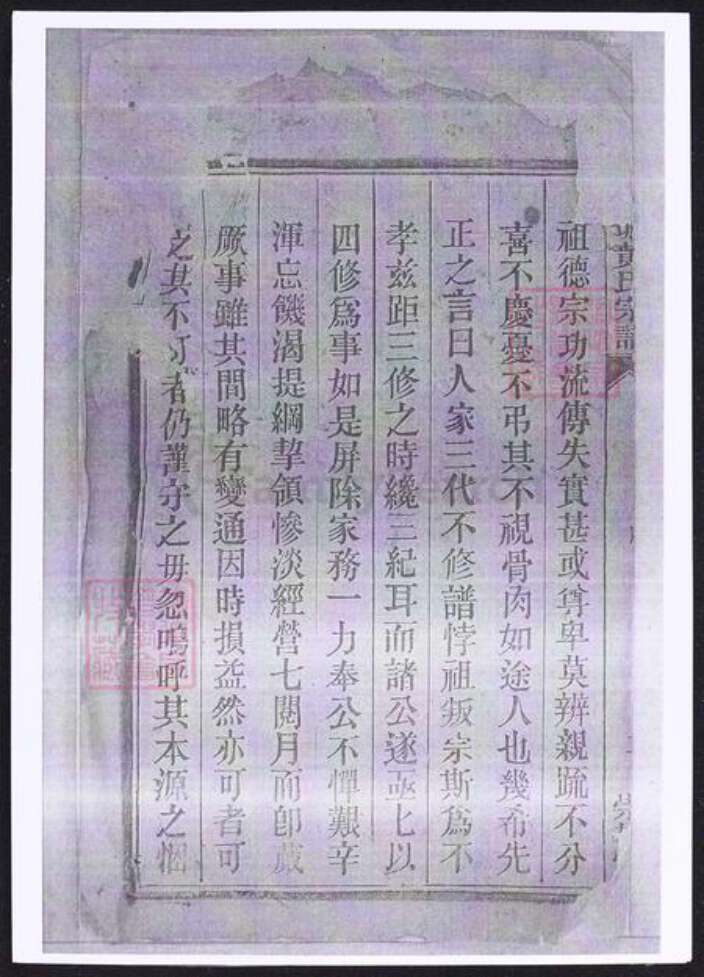 黄氏宗譜
祖德宗功流傳失實甚或尊卑莫辨親疏不分
喜不慶憂不弔其不視骨肉如途人也幾希先
正之言曰人家三代不修譜悖祖叛宗斯為不
孝兹距三修之時纔三紀耳而諸公遂亟亟以
四修爲事如是屏除家務一力奉公不憚艱辛
渾忘饑渴提綱挈領慘淡經營七閱月而即蕆
厥事雖其間略有變通因時損益然亦可者可
之其不可者仍謹守之毋忽嗚呼其本源之悃